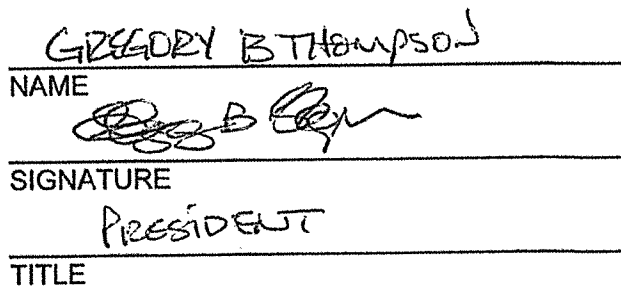 GREGORY B THOMPSON
NAME
B
SIGNATURE
PRESIDENT
TITLE